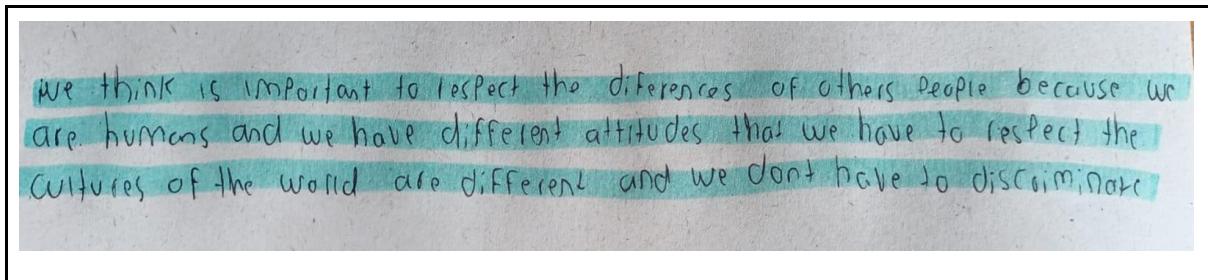 we think is important to respect the diferences of others people because we
are humans and we have different attitudes that we have to respect the
cultures of the world are different and we dont have to discriminate